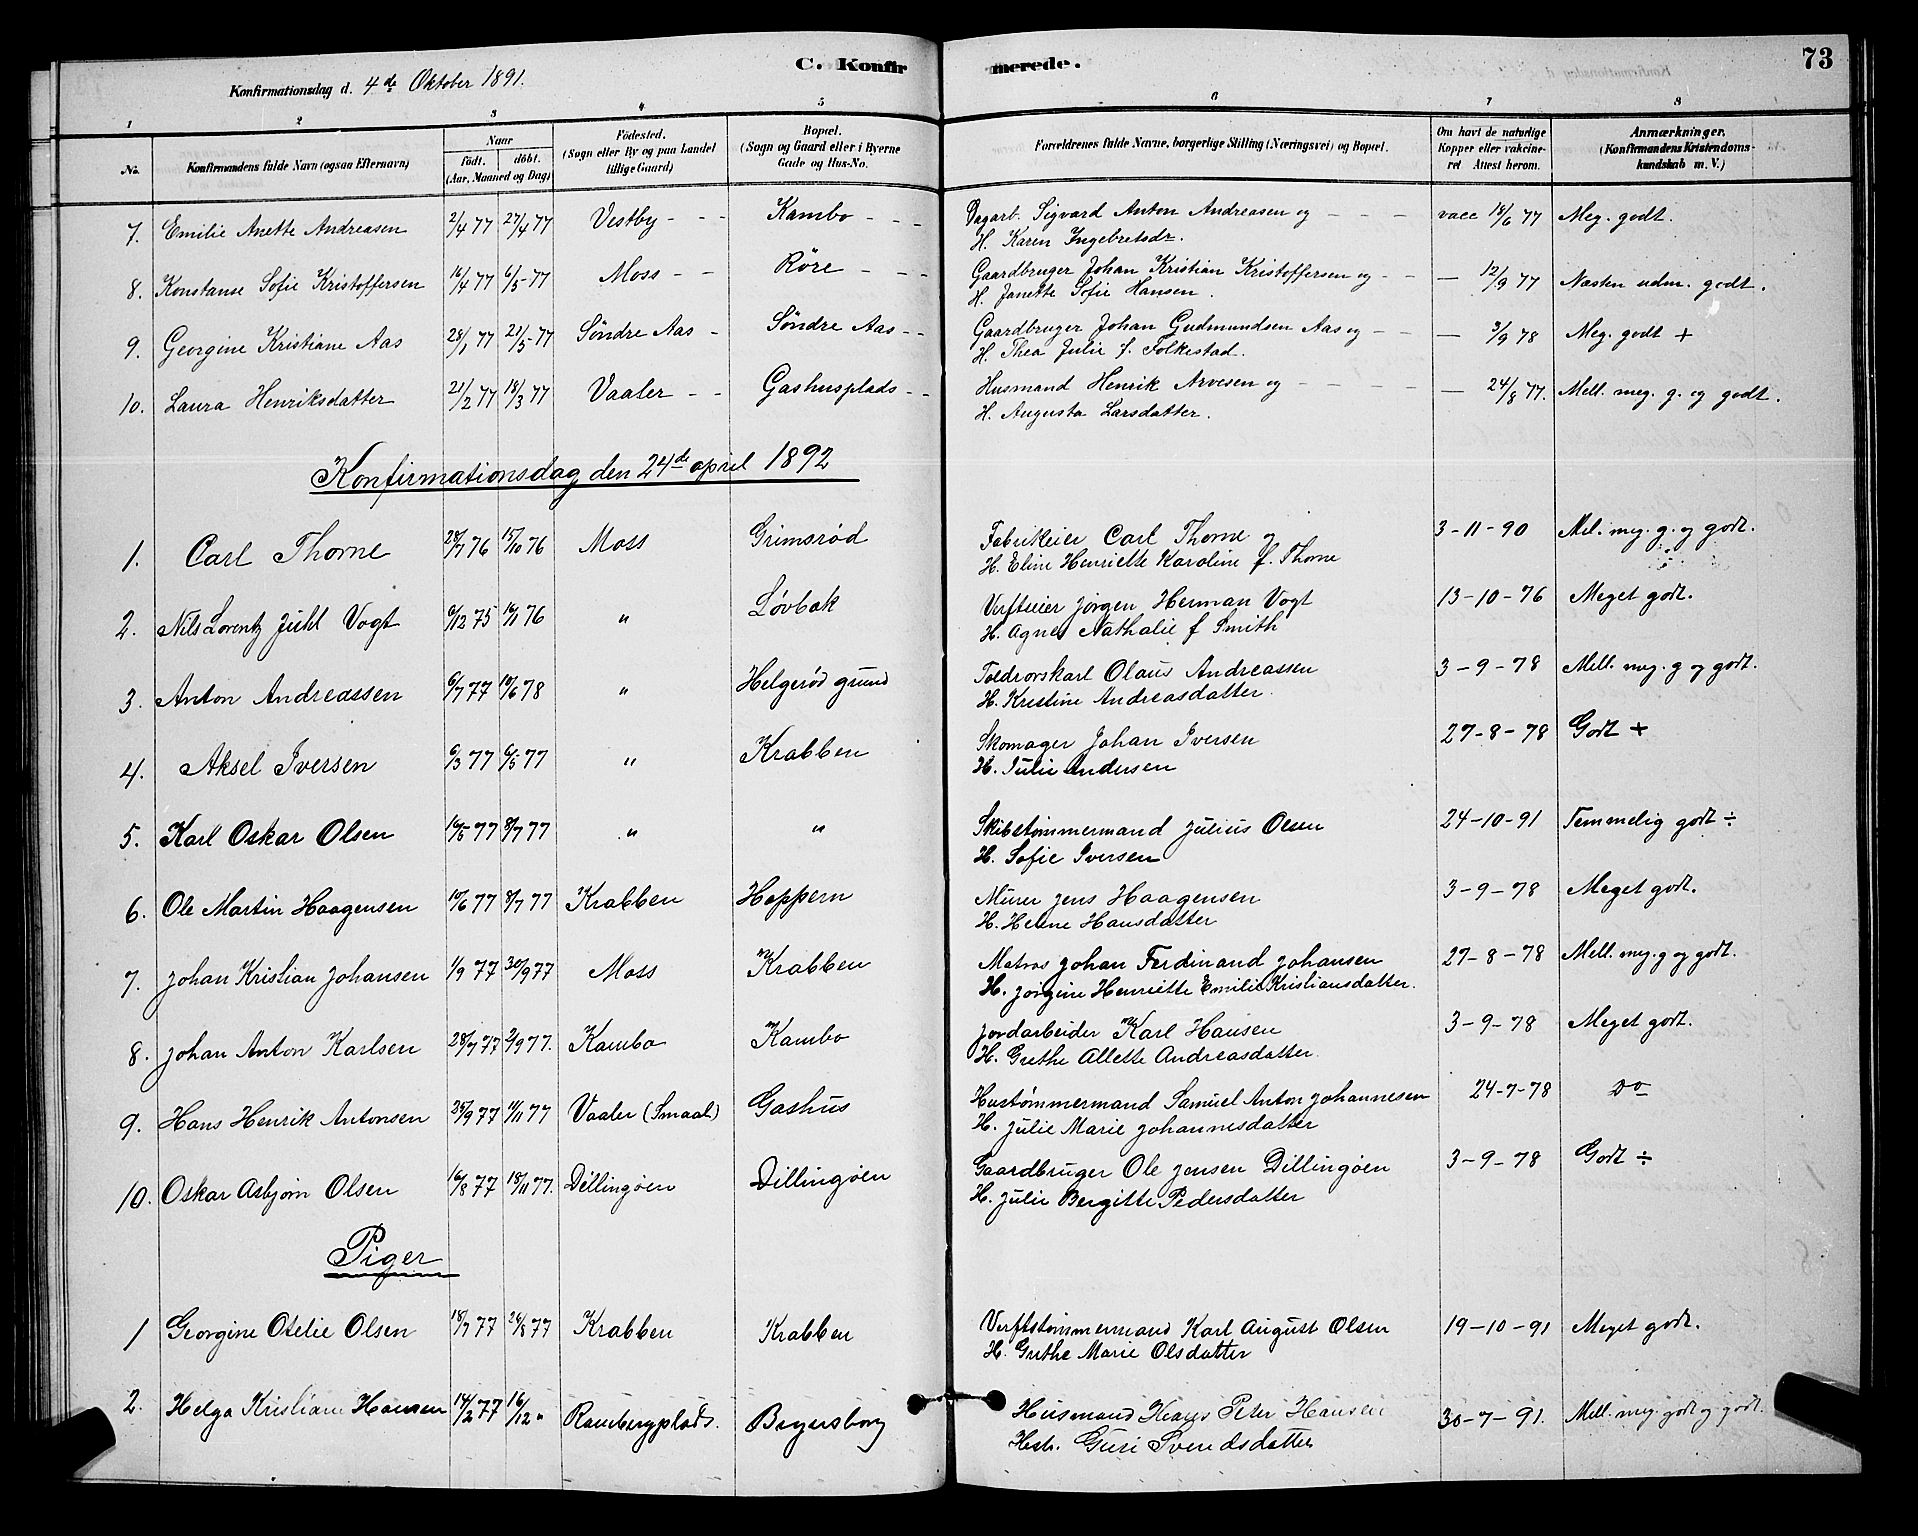 C. Konfirmerede.
73
Konfirmationsdag d. 4de Oktober 1891.
1 2 3 4 5 6 7 8
No. Konfirmandens fulde Navn (ogsaa Efternavn) Naar födt. döbt. (Aar, Maaned og Dag) Födested. (Sogn eller By og paa Landet tillige Gaard) Bopæl. (Sogn og Gaard eller i Byerne Gade og Hus-No. Forældrenes fulde Navne, borgerlige Stilling (Næringsvei) og Bopæl. Om havt de naturlige Kopper eller vakcineret Attest herom. Anmærkninger. (Konfirmandens Kristendomskundskab m. V.)
7. Emilie Anette Andreasen 2/4 77 27/4 77 Vestby - - - Kambo - - - Dagarb. Sigvard Anton Andreasen og - - - - vacc 18/6 77 Meg. godt.
H. Karen Ingebretsdr.
8. Konstanse Sofie Kristoffersen 16/4 77 6/5-77 Moss - - Röre - - - Gaardbruger Johan Kristian Kristoffersen og - - — 12/9 77 Næsten udm. godt.
H. Janette Sofie Hansen.
9. Georgine Kristiane Aas 28/1 77 21/5-77 Söndre Aas - Söndre Aas - - Gaardbruger Johan Gudmundsen Aas og - - — 3/9 78 Meg. godt +
H. Thea Julie f. Folkestad.
10. Laura Henriksdatter 21/2 77 18/3 77 Vaaler - - Gashusplads - - Husmand Henrik Arvesen og - - - - - — 24/8 77. Mell. meg. g. og godt.
H. Augusta Larsdatter.
Konfirmationsdag den 24de april 1892
1. Carl Thorne 28/7 76 15/10 76 Moss Grimsrød Fabrikeier Carl Thorne og 3-11-90 Mel. meg. g. og godt.
H. Eline Henriette Karoline f. Thorne
2. Nils Lorentz Juhl Vogt 6/12 75 16/1 76 " Løvbak Verfteier Jørgen Herman Vogt 13-10-76 Meget godt.
H. Agnes Nathalie f Smith
3. Anton Andreassen 6/7 77 10/6 78 " Helgerød grund Toldrorskarl Olaus Andreassen 3-9-78 Mell. meg. g og godt.
H. Kristine Andreasdatter.
4. Aksel Iversen 6/3 77 6/5 77 " Krabben Skomager Johan Iversen 27-8-78 Godt +
H. Julie Andersen
5. Karl Oskar Olsen 16/5 77 8/7 77 " " Skibstømmermand Julius Olsen 24-10-91 Temmelig godt ÷
H. Sofie Iversen
6. Ole Martin Haagensen 10/6 77 8/7 77 Krabben Hoppern Murer Jens Haagensen 3-9-78 Meget godt.
H. Helene Hansdatter
7. Johan Kristian Johansen 1/9 77 30/9 77 Moss Krabben Matros Johan Ferdinand Johansen 27-8-78 Mell. meg. g og godt.
H. Jørgine Henriette Emilie Kristiansdatter.
8. Johan Anton Karlsen 28/7 77 2/9 77. Kambo Kambo Jordarbeider Karl Hansen 3-9-78 Meget godt.
H. Grethe Allette Andreasdatter.
9. Hans Henrik Antonsen 25/9 77 11/11 77 Vaaler (Smaal) Gashus Hustømmermand Samuel Anton Johannesen 24-7-78 Do
H. Julie Marie Johannesdatter
10. Oskar Asbjørn Olsen 16/8 77 18/11 77. Dillingøen Dillingøen Gaardbruger Ole Jensen Dillingøen 3-9-78 Godt ÷
H. Julie Bergitte Pedersdatter
Piger
1 Georgine Otelie Olsen 18/7 77 26/8 77 Krabben Krabben Verftstømmermand Karl August Olsen 19-10-91 Meget godt.
H. Grethe Marie Olsdatter
2. Helga Kristiane Hansen 14/2 77 16/12 " Rambergplads. Beyersborg Husmand Peter Hansen 30-7-91. Mell. meg. godt og godt.
Hustr. Guri Svendsdatter